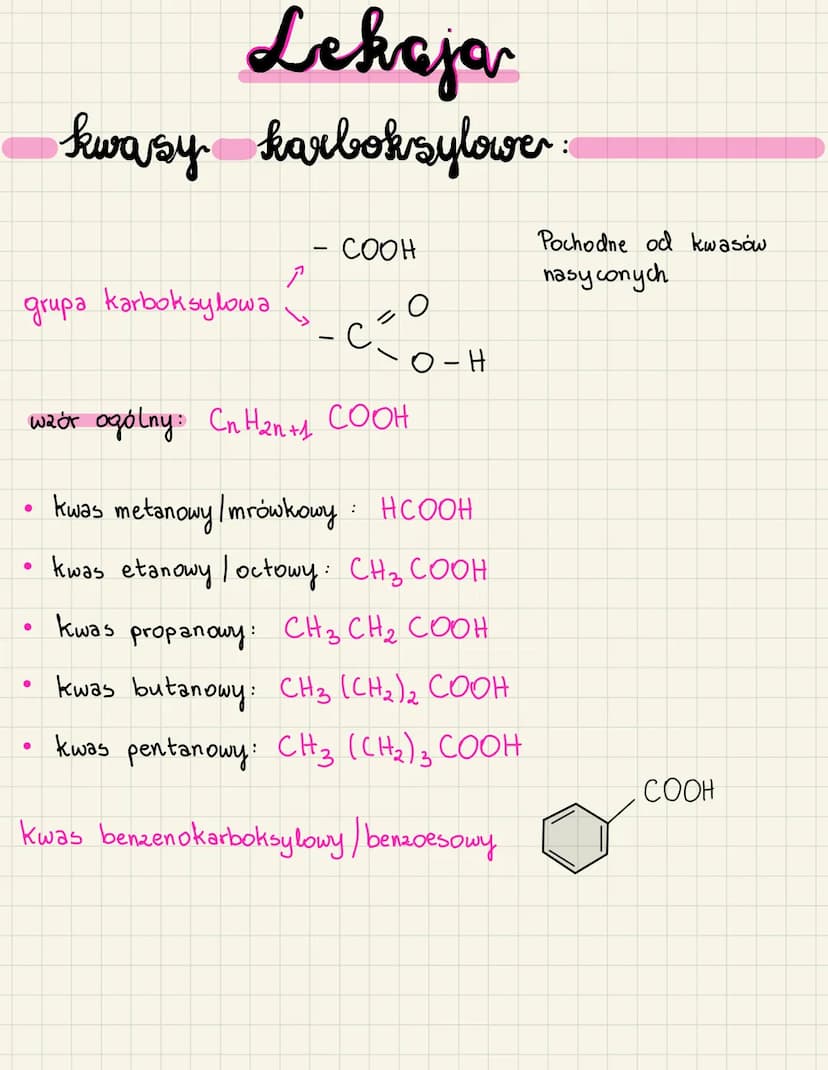 Lekcja
kwasy karboksylowe:
- COOH
Pochodne od kwasów
nasyconych
grupa karboksylowa
- C = O
O - H
wzór ogólny: CnH2n+1 COOH
• kwas metanowy/mrówkowy : HCOOH
• kwas etanowy/octowy: CH3COOH
• kwas propanowy: CH3CH2COOH
• kwas butanowy: CH3(CH2)2COOH
• kwas pentanowy: CH3(CH2)3COOH
COOH
kwas benzenokarboksylowy/benzoesowy